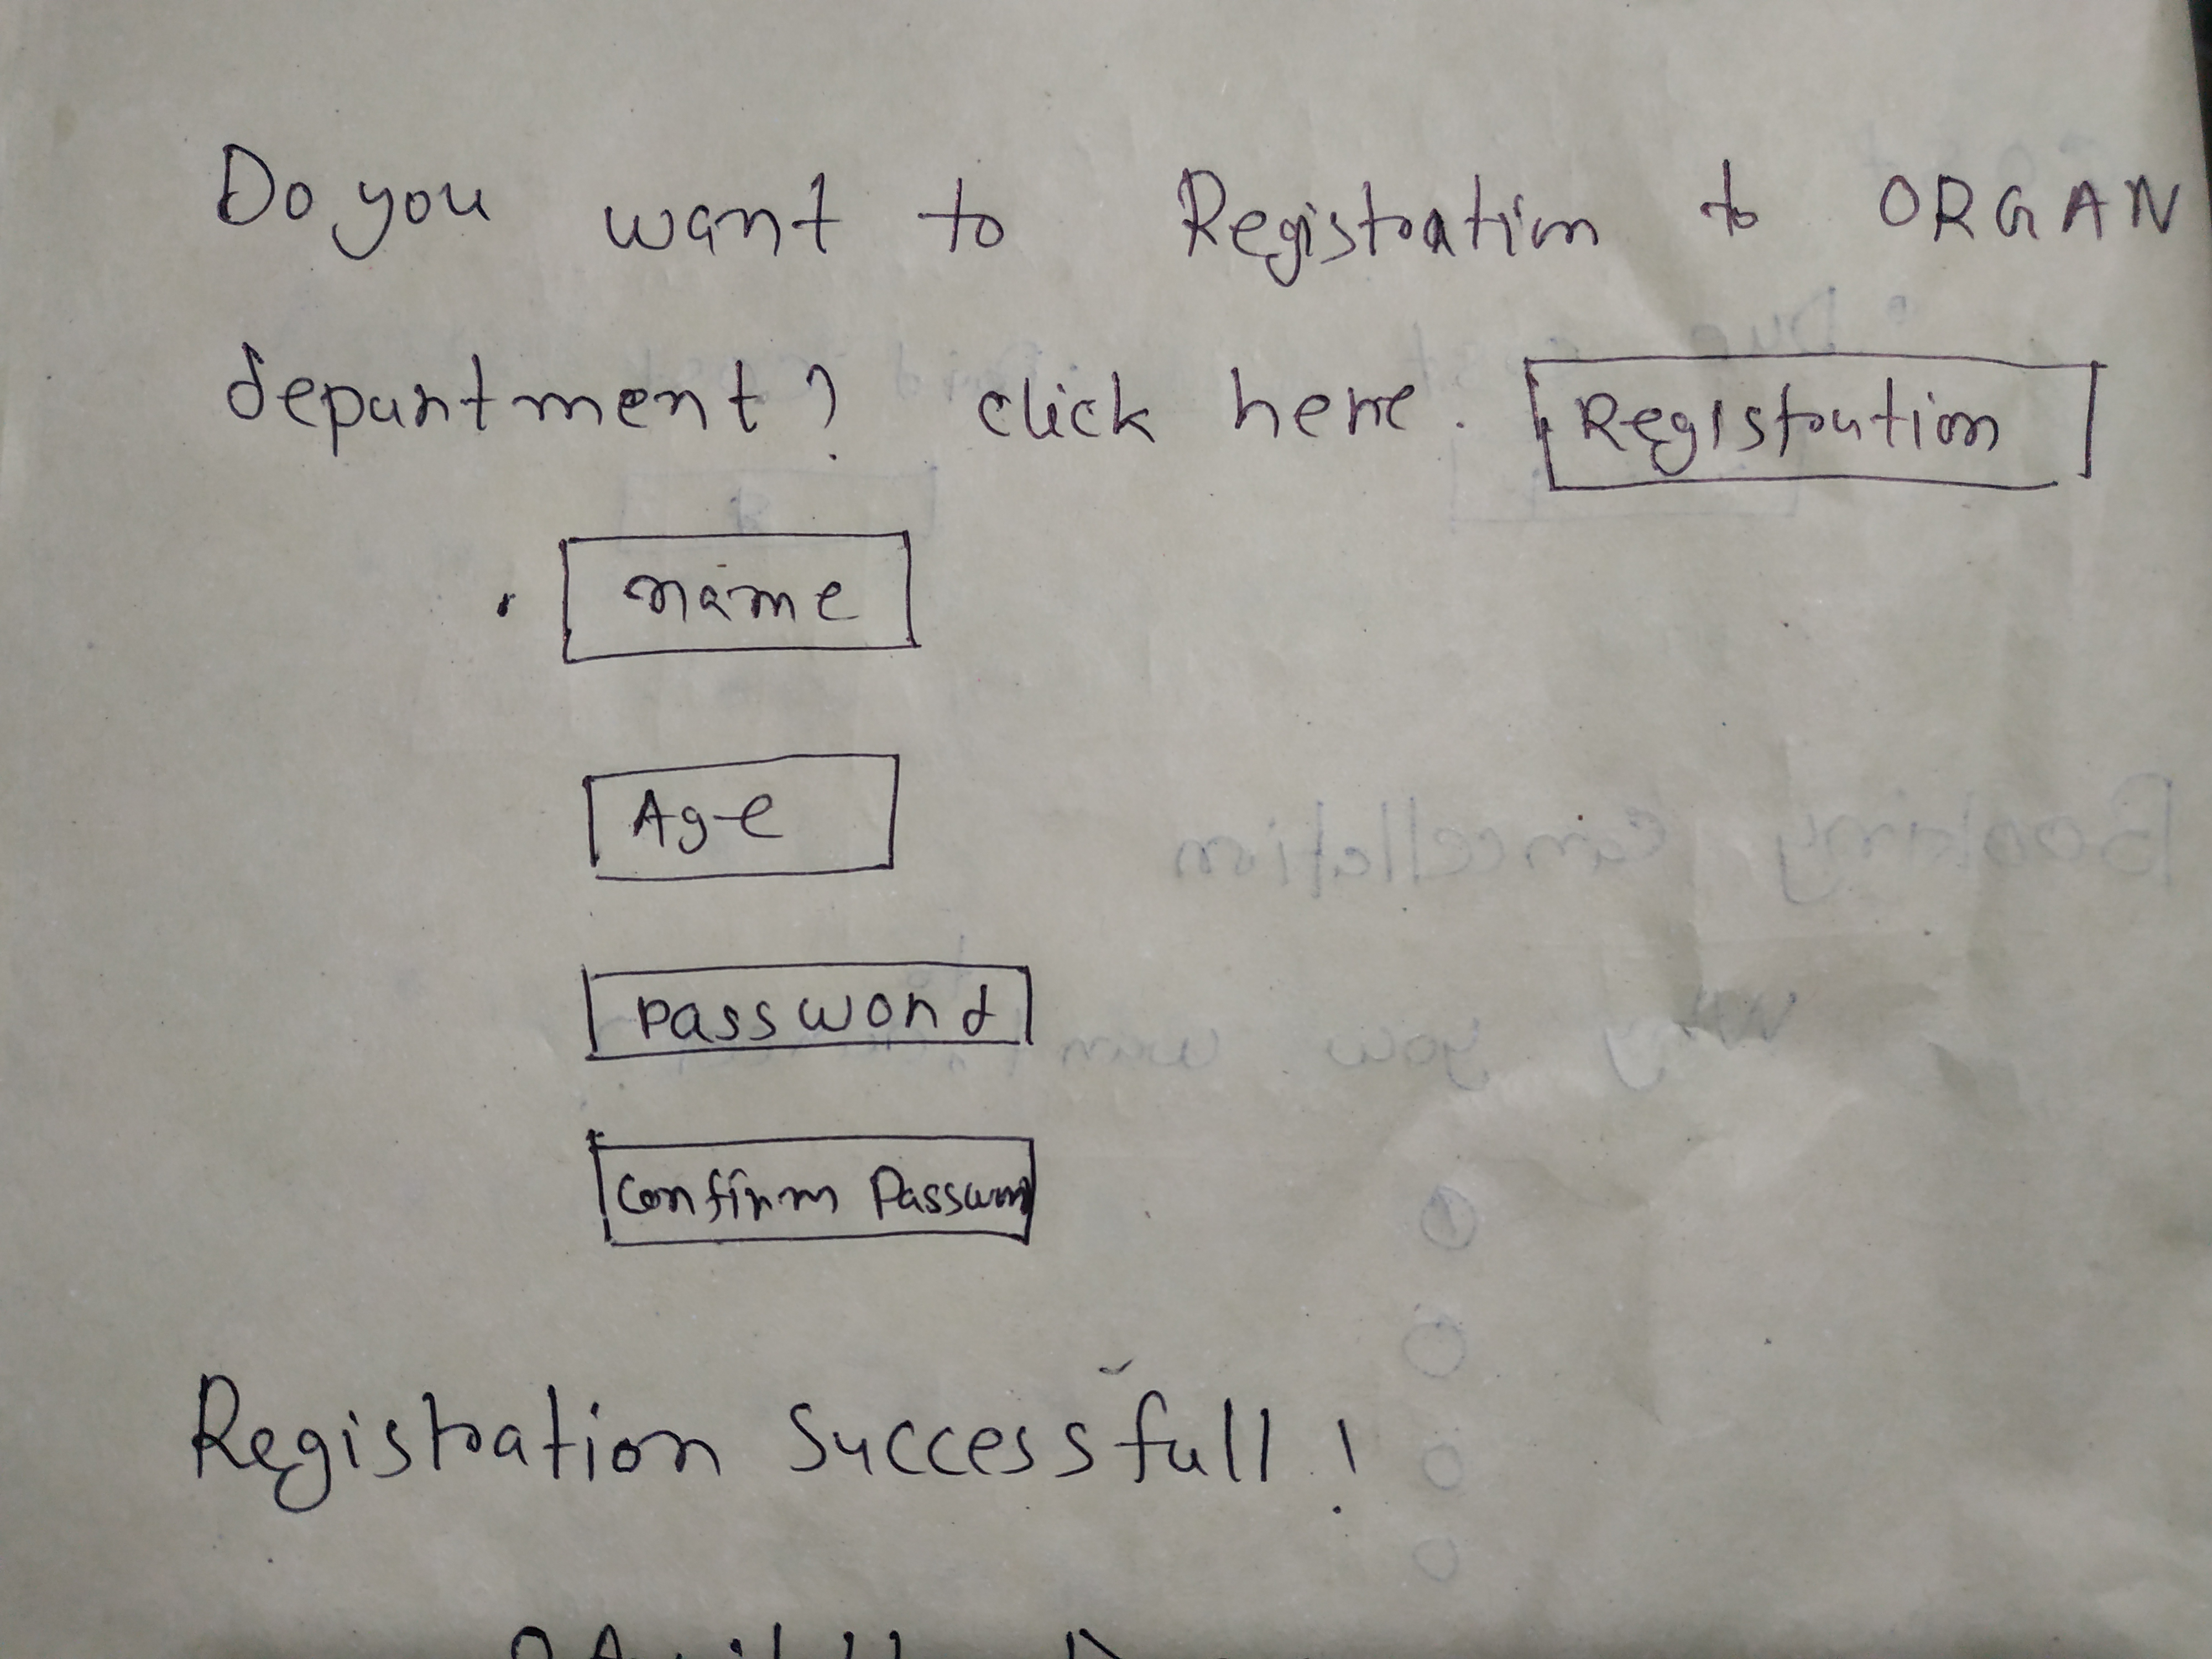 Do you want to Registration to ORGAN
department? click here. Registration
name
Age
Password
Confirm Passwor
Registration Successfull!